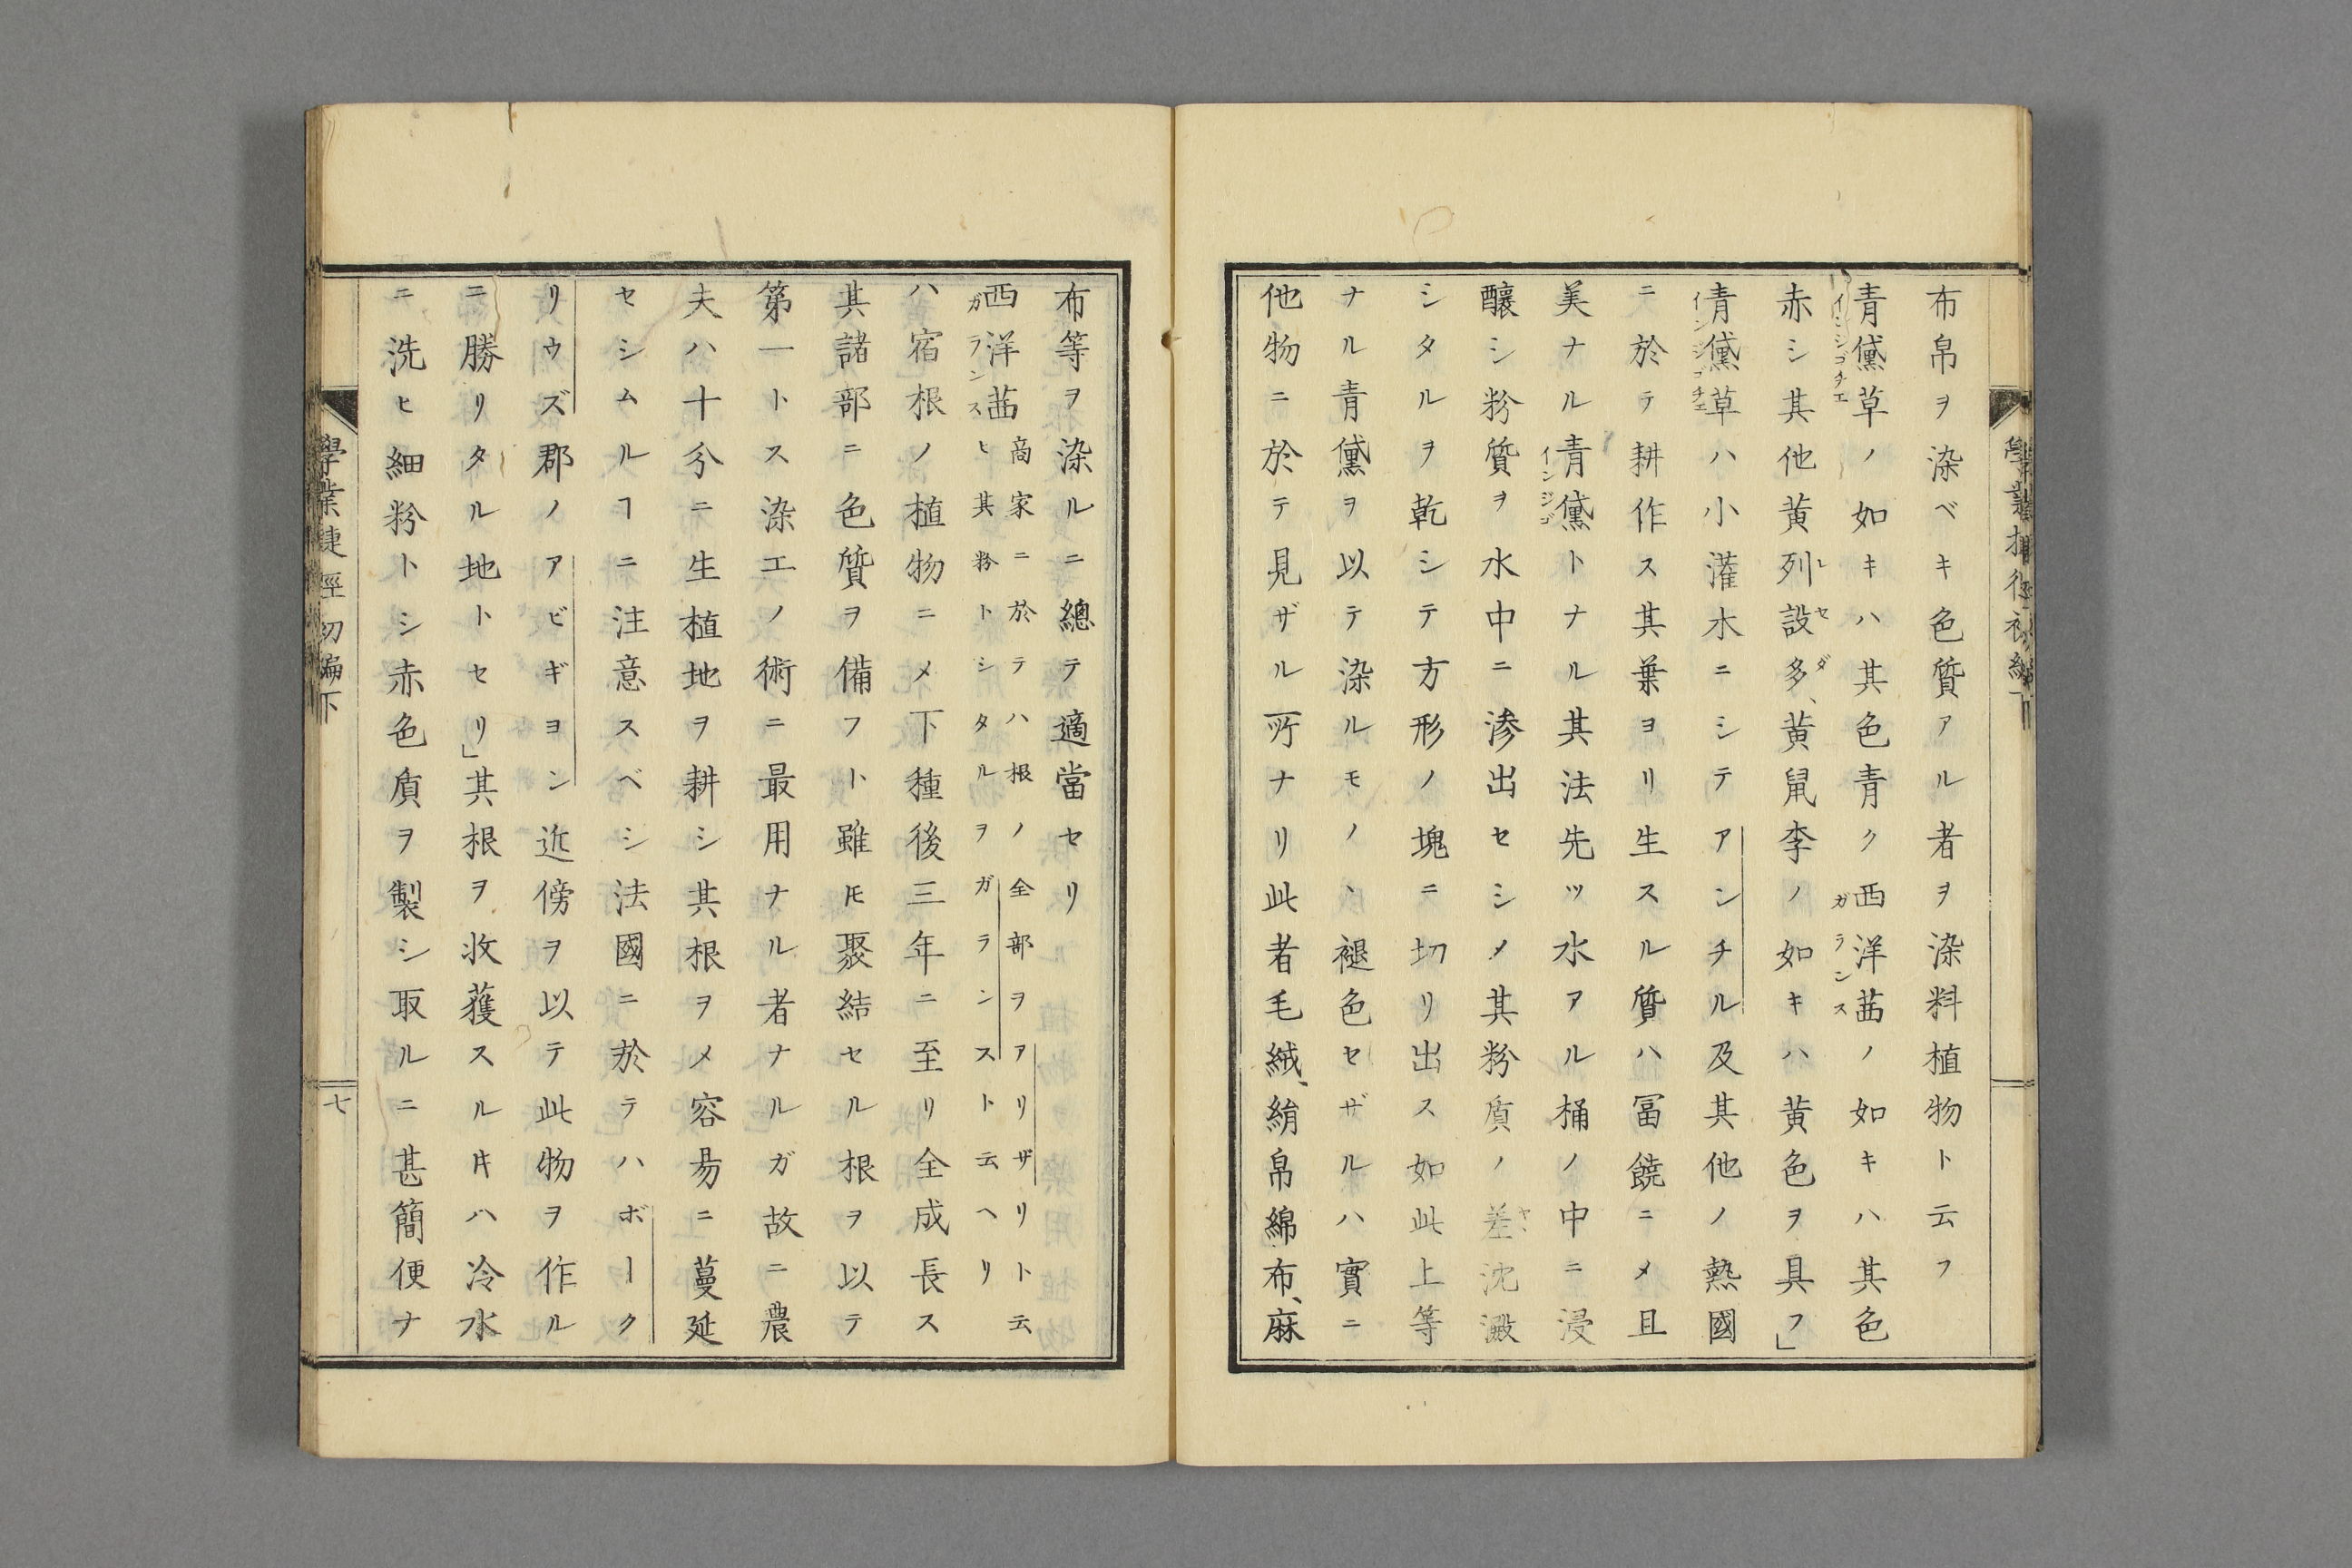 布帛ヲ染ベキ色質アル者ヲ染料植物ト云フ
青黛草ノ如キハ其色青ク西洋茜ノ如キハ其色
インジゴチエ
ガランス
赤シ其他黄列設多、黄鼠李ノ如キハ黄色ヲ具フ」
レセダ
青黛草ハ小灌木ニシテアンチル及其他ノ熱國
インジゴチエ
ニ於テ耕作ス其葉ヨリ生スル質ハ冨饒ニメ且
美ナル青黛トナル其法先ツ水アル桶ノ中ニ浸
インジゴ
釀シ粉質ヲ水中ニ滲出セシメ其粉質ノ差沈澱
ヤヽ
シタルヲ乾シテ方形ノ塊ニ切リ出ス如此上等
ナル青黛ヲ以テ染ルモノヽ褪色セザルハ實ニ
他物ニ於テ見ザル所ナリ此者毛絨、絹帛綿布、麻
布等ヲ染ルニ總テ適當セリ
西洋茜
ガランス
商家ニ於テハ根ノ全部ヲアリザリト云
ヒ其粉トシタルヲガランスト云ヘリ
ハ宿根ノ植物ニメ下種後三年ニ至リ全成長ス
其諸部ニ色質ヲ備フト雖𪜈聚結セル根ヲ以テ
第一トス染工ノ術ニ最用ナル者ナルガ故ニ農
夫ハ十分ニ生植地ヲ耕シ其根ヲメ容易ニ蔓延
セシムルヿニ注意スベシ法國ニ於テハボーク
リウズ郡ノアビギヨン近傍ヲ以テ此物ヲ作ル
ニ勝リタル地トセリ」其根ヲ收獲スルキハ冷水
ニ洗ヒ細粉トシ赤色質ヲ製シ取ルニ甚簡便ナ
學業捷徑初編下
七